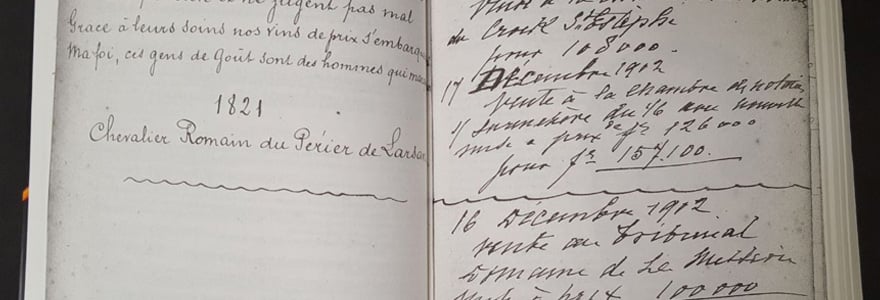 ne jugent pas mal
Grace à leurs soins nos vins de prix s'embarq
Ma foi, ces gens de Goût sont des hommes qui
1821
Chevalier Romain du Périer de Larsan
du Crock St Estèphe
pour 108000.
17 Décembre 1912
Vente à la Chambre des notaires
mise a prix de fr 126000
pour fr 157.100.
16 Décembre 1912.
Vente au Tribunal
Domaine de La Mission
mise à prix 100000